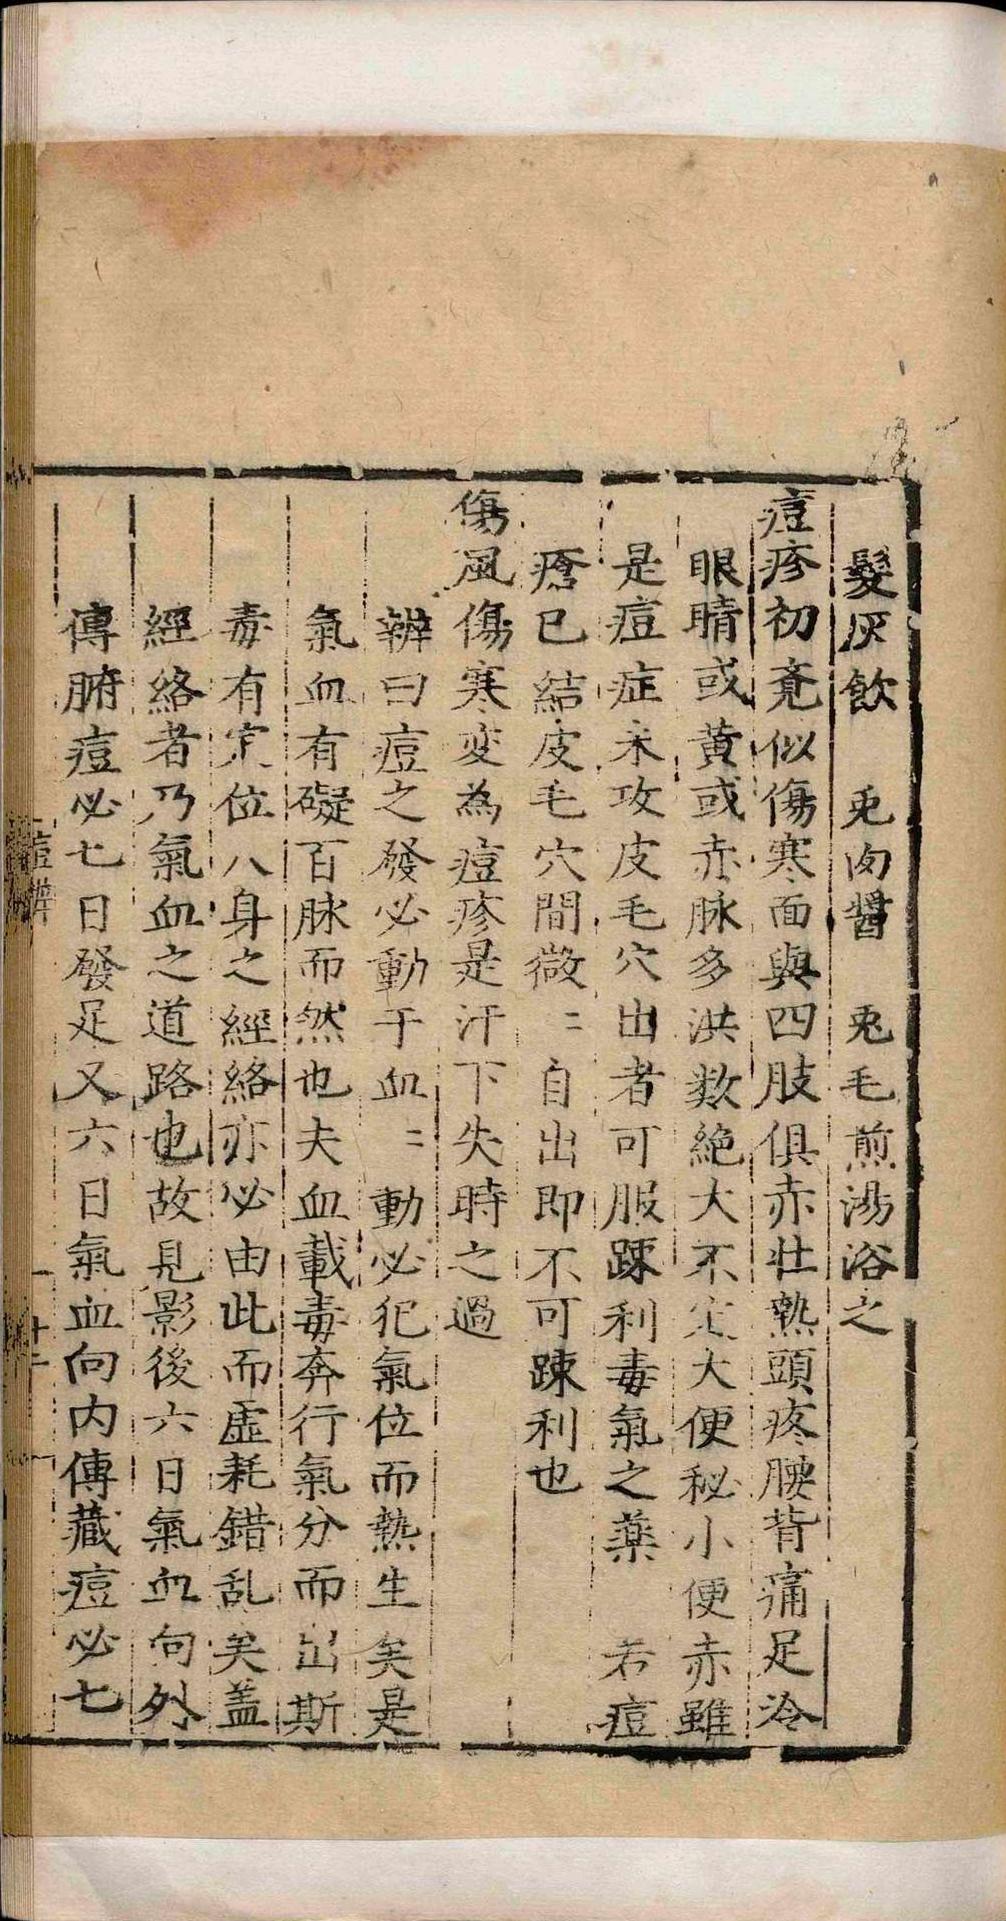 髮灰飲　兎肉醬　兎毛煎湯浴之
痘疹初覔似傷寒面與四肢俱赤壮熱頭疼腰背痛足冷
眼睛或黄或赤脉多洪数絶大不定大便秘小便赤雖
是痘症未攻皮毛穴出者可服踈利毒氣之藥　若痘
瘡已結皮毛穴間微〻自出即不可踈利也
傷風傷寒变為痘疹是汗下失時之過
辨曰痘之發必動于血〻動必犯氣位而熱生矣是
氣血有礙百脉而然也夫血載毒奔行氣分而出斯
毒有定位八身之經絡亦必由此而虛耗錯乱矣盖
經絡者乃氣血之道路也故見影後六日氣血向外
傳腑痘必七日發足又六日氣血向内傳藏痘必七
痘辨
十二